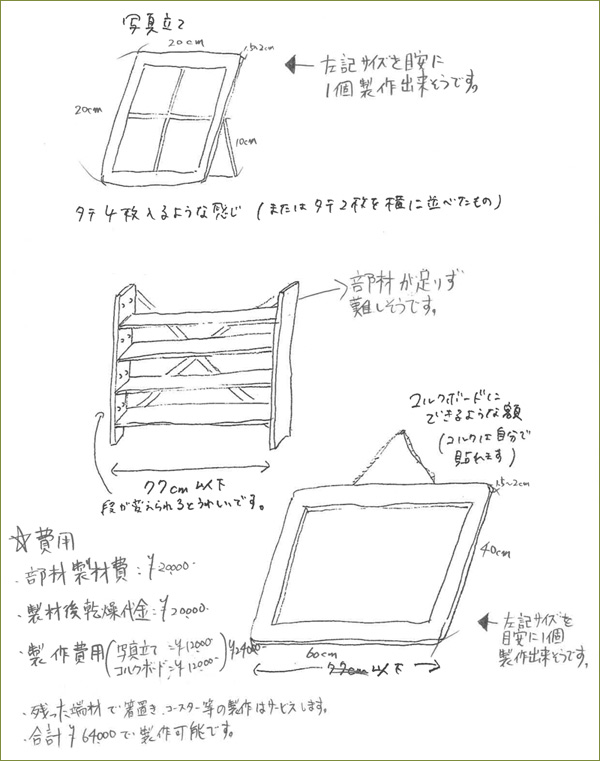 写真立て
20cm
1.5~2cm
20cm
10cm
← 左記サイズを目安に
1個製作出来そうです。
タテ4枚入るような感じ (またはタテ2枚を横に並べたもの)
部材が足りず
難しそうです。
77cm以下
段が変えられるとうれしいです。
コルクボードに
できるような額
(コルクは自分で
貼れます)
1.5~2cm
40cm
60cm
77cm以下
← 左記サイズを
目安に1個
製作出来そうです。
☆費用
・部材製材費:¥20000-
・製材後乾燥代金:¥20,000-
・製作費用(写真立て=¥12000- コルクボード=¥12000-)¥24000-
・残った端材で箸置き、コースター等の製作はサービスします。
・合計¥64,000で製作可能です。